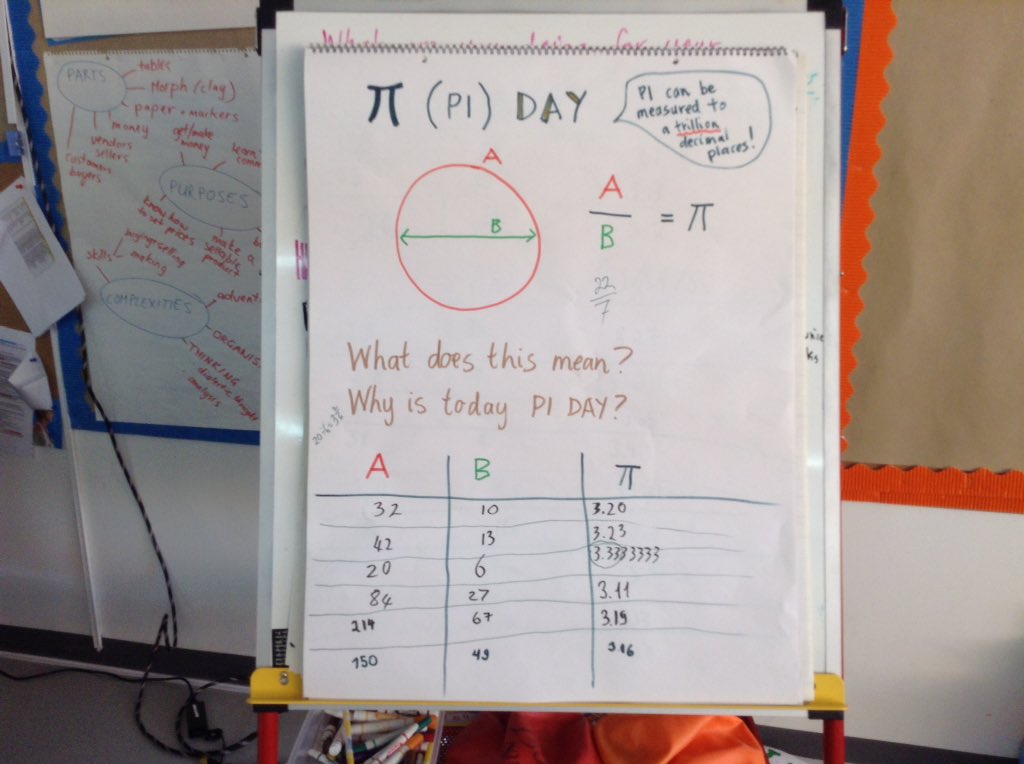 π (PI) DAY
PI can be
measured to
a trillion
decimal
places!
A
B
A
B
= π
22
7
What does this mean?
Why is today PI DAY?
A B π
32 10 3.20
42 13 3.23
20 6 3.3333333
84 27 3.11
214 67 3.19
150 49 3.16
PARTS
tables
Morph (clay)
paper + markers
money
vendors
sellers
customers
buyers
get/make
money
PURPOSES
know how
to set prices
make a
sellable
product
buying+selling
making
skills
COMPLEXITIES
THINKING